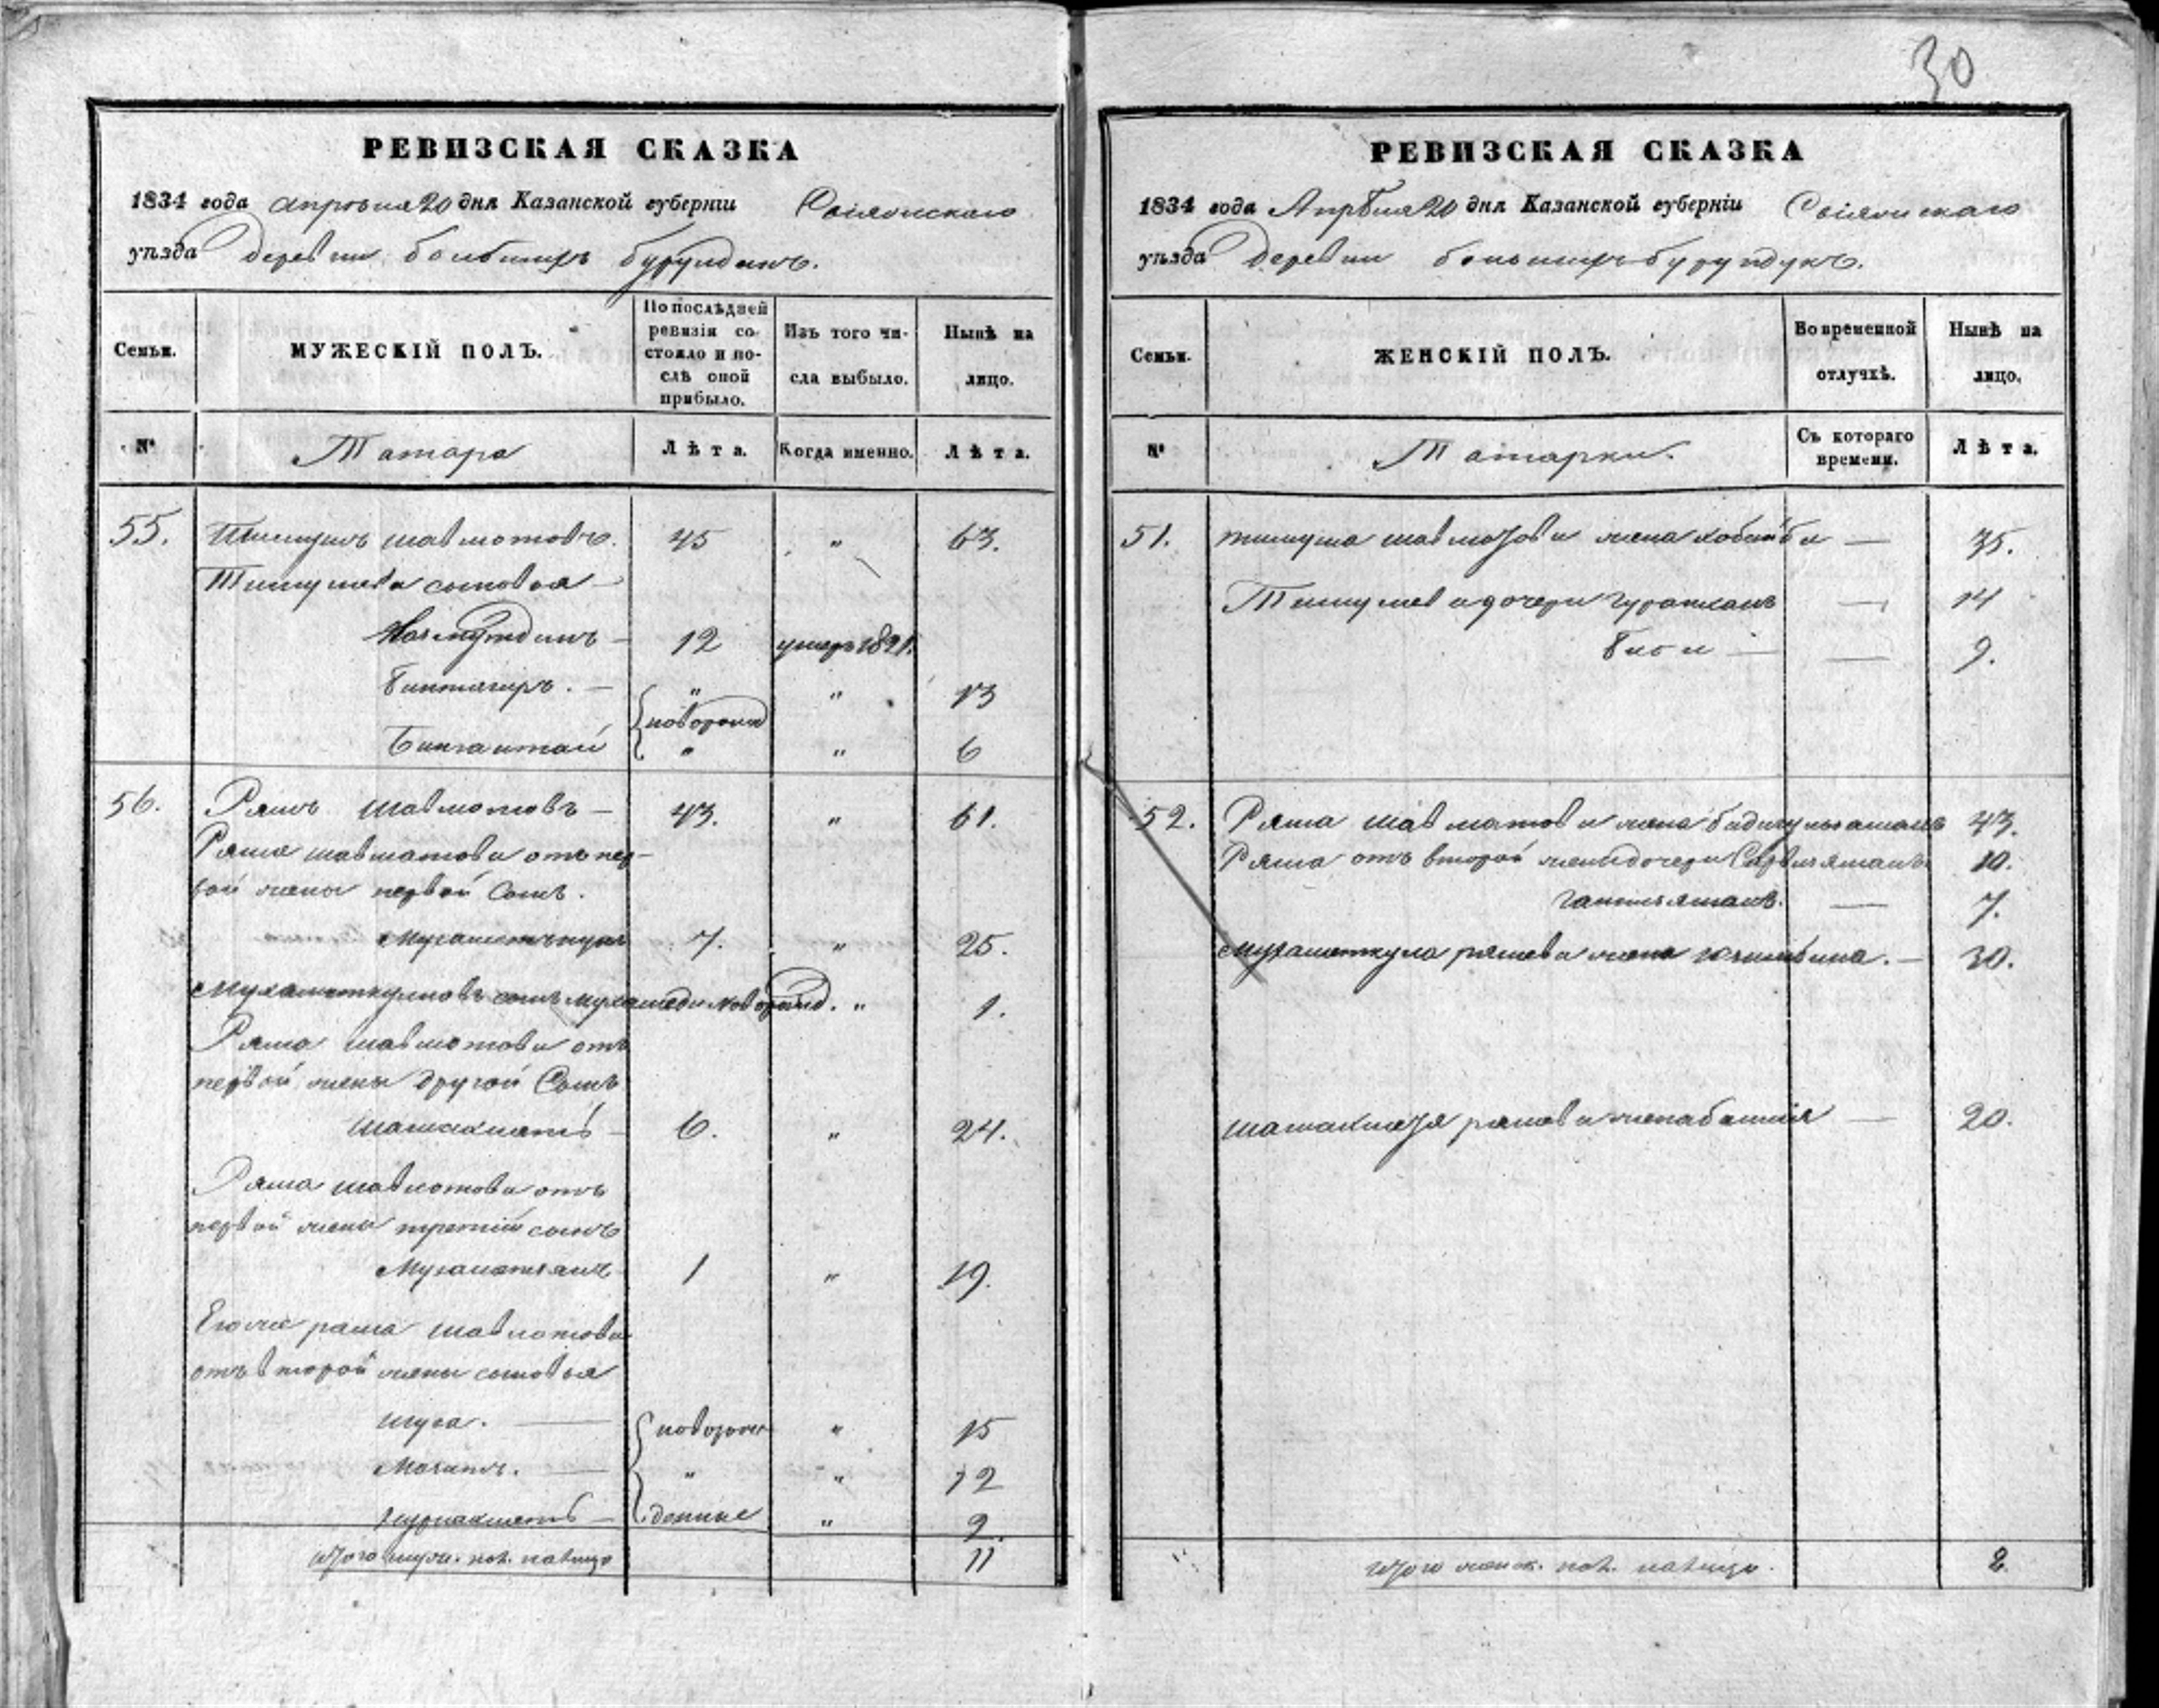 30
РЕВИЗСКАЯ СКАЗКА
1834 года Апреля 20 дня Казанской губерніи Свіяжскаго
уѣзда деревни большихъ бурундукъ.
Семьи. МУЖЕСКІЙ ПОЛЪ. По послѣдней ревизіи состояло и послѣ оной прибыло. Изъ того числа выбыло. Нынѣ на лицо.
№ Татара Лѣта. Когда именно. Лѣта.
55. Тимушъ шавмотовъ. 45 " 63.
Тимушева сыновья
12 умеръ 1821.
Биктагиръ. " " 13
новорожд
Бикгантай " " 6
56. Рямъ Шавмотовъ 43. " 61.
Ряма шавматова отъ пер-
вой жены первой Сынъ.
Мухаметькулъ 7. " 25.
Мухаметкуловъ сынъ мухамеди новорожд. " 1.
Ряма шавмотова отъ
первой жены другой Сынъ
Шамакметъ 6. " 24.
Ряма шавмотова отъ
первой жены третій сынъ
Мухаметжанъ 1 " 19.
Егоже ряма шавмотова
отъ второй жены сыновья
Муса. новорож " 15
" " 12
Нурмакметъ " 9.
Итого муж. пол. налицо 11
РЕВИЗСКАЯ СКАЗКА
1834 года Апрѣля 20 дня Казанской губерніи Свіяжскаго
уѣзда Деревни большихъ бурундукъ.
Семьи. ЖЕНСКІЙ ПОЛЪ. Во временной отлучкѣ. Нынѣ на лицо.
№ Татарки. Съ котораго времени. Лѣта.
51. тимуша шавмотова жена хобийби 35.
Тимушева дочери 14
Биби 9.
52. Ряма шавматова жена 43.
Ряма отъ второй жены дочери 10.
7.
Мухаметкула рямева жена 30.
шамакметя рямева жена 20.
Итого женск. пол. налицо. 8.